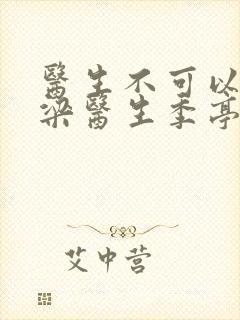 醫生不可以
梁醫生季亭
艾中营